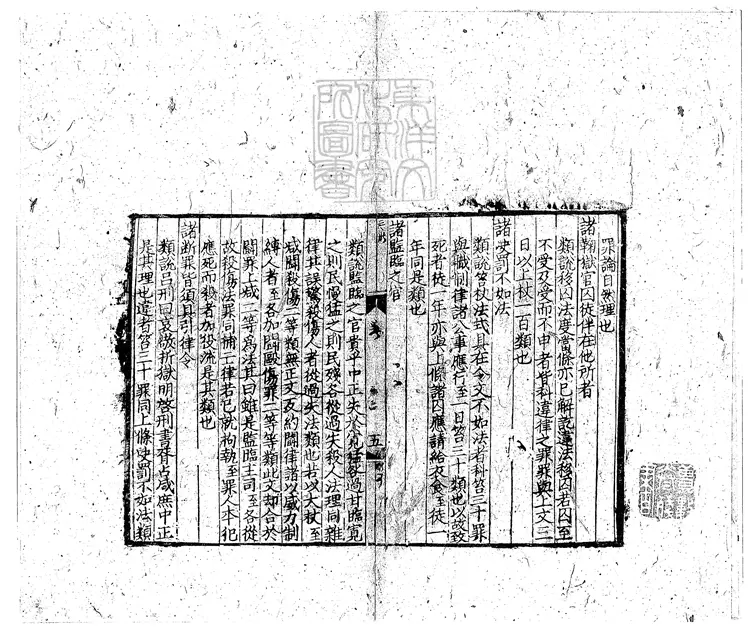 罪論自然理也
諸鞫獄官囚徒伴在他所者
類說移囚法度當條亦已解說違法移囚若囚至
不受及受而不申者皆科違律之罪罪與上文三
日以上杖一百類也
諸決罰不如法
類說笞杖法式具在令文不如法者科笞三十罪
與職制律諸公事應行至一日笞三十類也以故致
死者徒一年亦與上條諸囚應請給衣食至徒一
年同是類也
諸監臨之官
類說監臨之官貴乎中正失於寬猛
之則民慢猛之則民殘各從過失殺人法理同雜
律其誤驚殺傷人者從過失法類也若以大杖至
減鬪殺傷二等類無正文反約鬪律諸以威力制
縛人者至各加鬪毆傷罪二等等類此文却合於
鬪罪上減二等為法其曰雖是監臨主司至各從
故殺傷法罪同捕亡律若已就拘執至罪人本犯
應死而殺者加役流是其類也
諸斷罪皆須具引律令
類說呂刑曰哀敬折獄明啓刑書胥占咸庶中正
是其理也違者笞三十罪同上條決罰不如法類
五